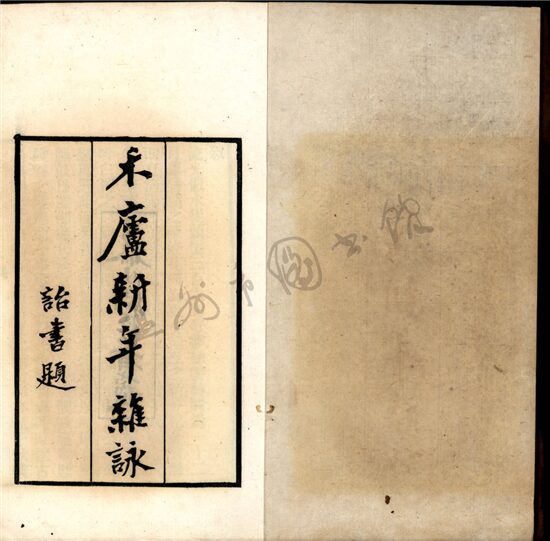 禾廬新年雜詠
詒書題